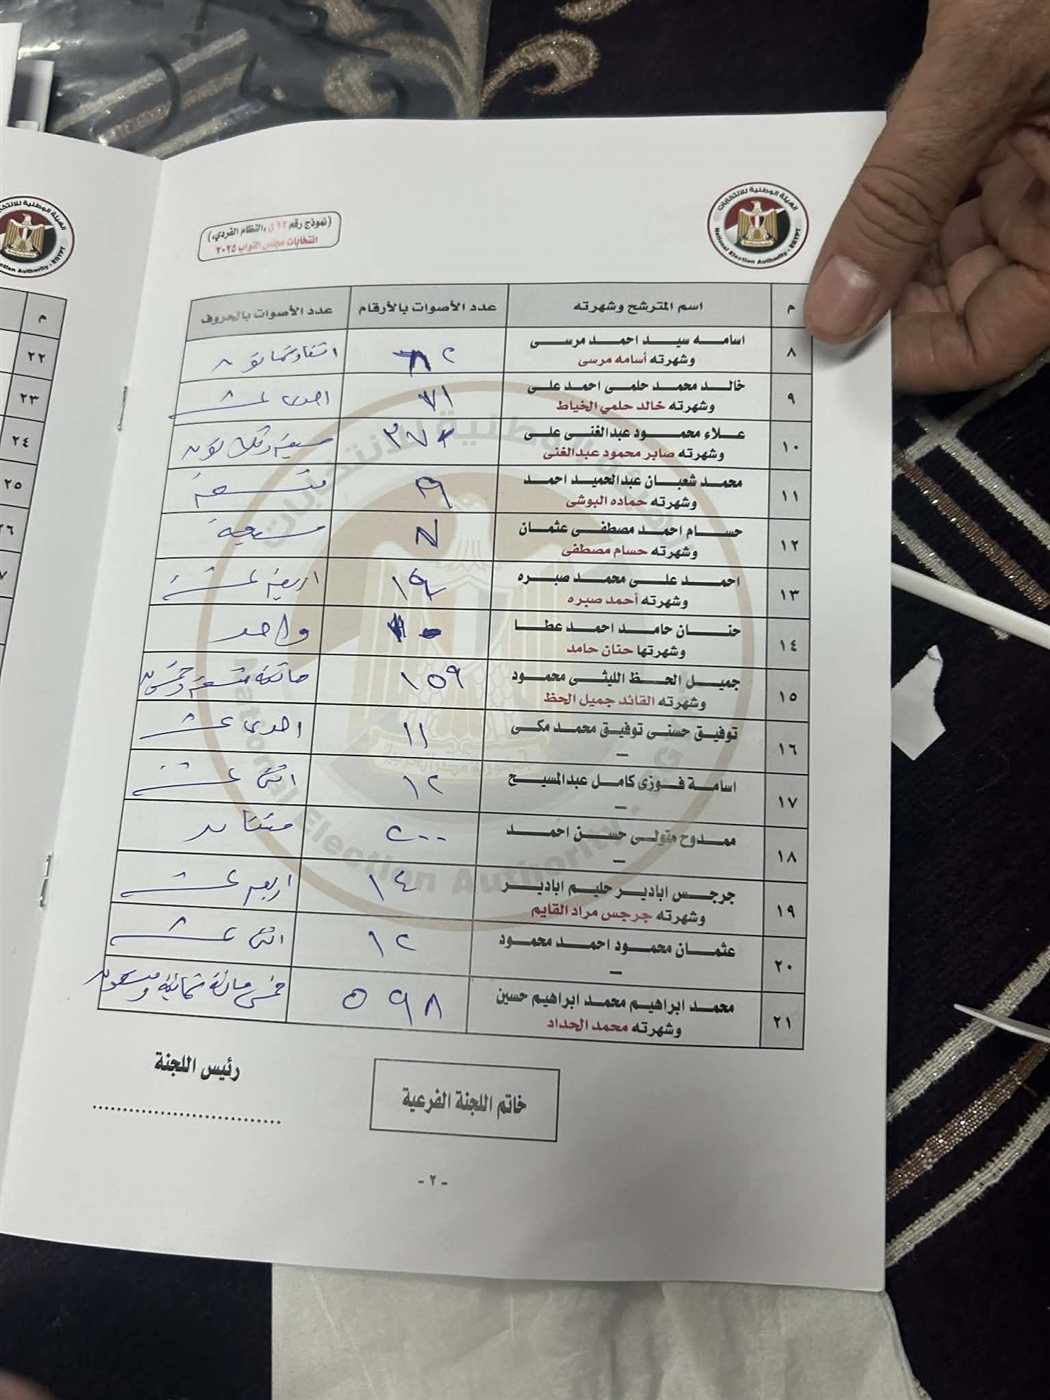 (نموذج رقم ١٢ ن،النظام الفردي،)
انتخابات مجلس النواب ٢٠٢٥
الهيئة الوطنية للانتخابات
National Election Authority - EGYPT
م
اسم المترشح وشهرته
عدد الأصوات بالأرقام
عدد الأصوات بالحروف
٨
اسامه سيد احمد مرسى
وشهرته أسامه مرسى
٩
خالد محمد حلمى احمد على
وشهرته خالد حلمي الخياط
احدى عشر
١٠
علاء محمود عبدالغنى على
وشهرته صابر محمود عبدالغنى
١١
محمد شعبان عبدالحميد احمد
وشهرته حماده البوشى
٩
تسعة
١٢
حسام احمد مصطفى عثمان
وشهرته حسام مصطفى
١٣
احمد على محمد صبره
وشهرته أحمد صبره
اربعة عشر
١٤
حنان حامد احمد عطا
وشهرتها حنان حامد
واحد
١٥
جميل الحظ الليثى محمود
وشهرته القائد جميل الحظ
١٥٩
مائة تسعة وخمسون
١٦
توفيق حسنى توفيق محمد مكى
–
١١
احدى عشر
١٧
اسامة فوزى كامل عبدالمسيح
–
١٢
اثنى عشر
١٨
ممدوح متولى حسن احمد
–
٢٠٠
١٩
جرجس ابادير حليم ابادير
وشهرته جرجس مراد القايم
١٤
اربع عشر
٢٠
عثمان محمود احمد محمود
–
١٢
اثنى عشر
٢١
محمد ابراهيم محمد ابراهيم حسين
وشهرته محمد الحداد
٥٩٨
خمس مائة ثمانية وتسعون
خاتم اللجنة الفرعية
رئيس اللجنة
- ٢ -
م
٢٢
٢٣
٢٤
٢٥